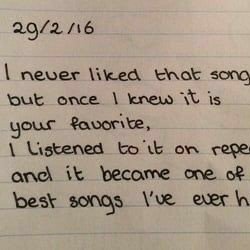 29/2/16
I never liked that song
but once I knew it is
your favorite,
I listened to it on repe
and it became one of
best songs I've ever h